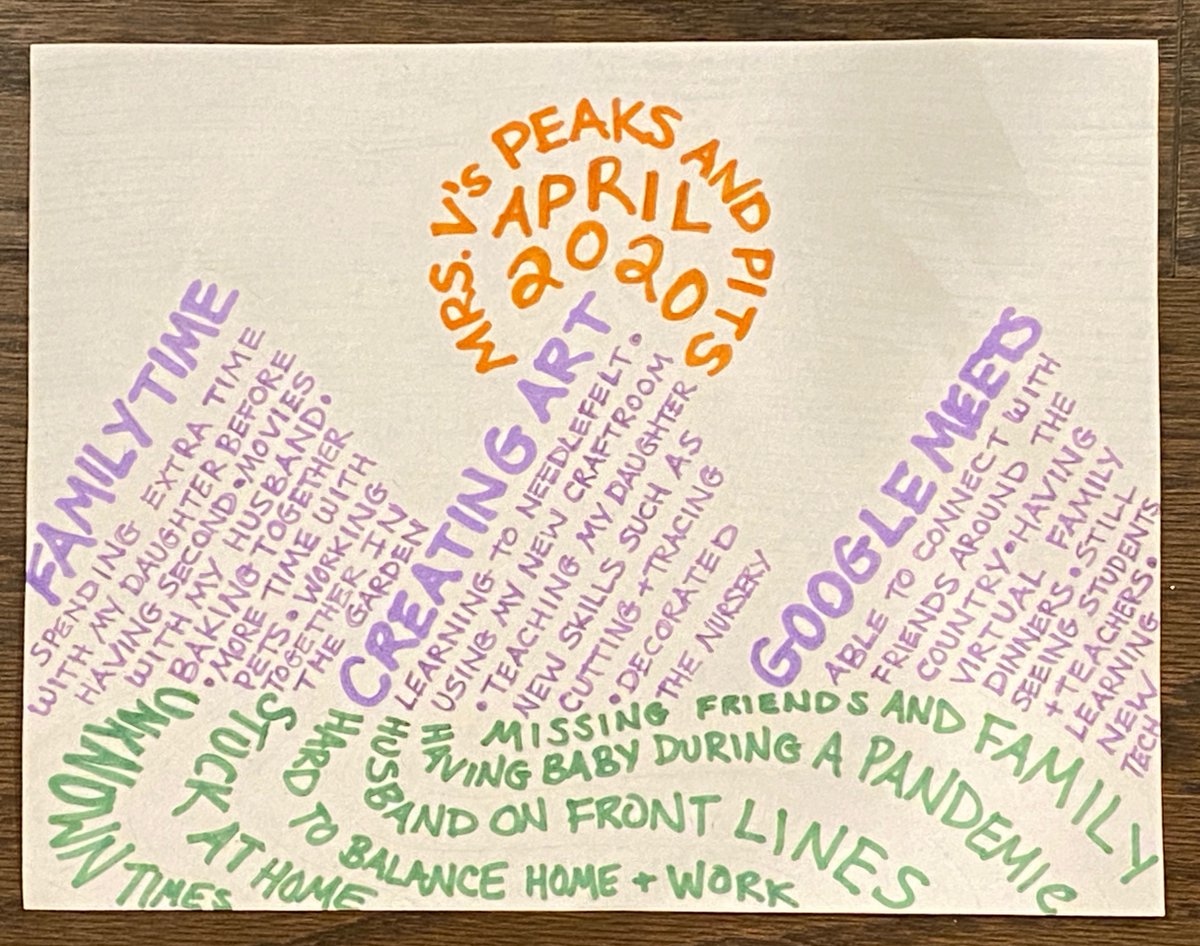 MRS. V's PEAKS AND PITS
APRIL
2020
FAMILY TIME
SPENDING EXTRA TIME
WITH MY DAUGHTER BEFORE
HAVING SECOND • MOVIES
WITH MY HUSBAND •
BAKING TOGETHER
• MORE TIME WITH
PETS • WORKING
TOGETHER IN
THE GARDEN
CREATING ART
LEARNING TO NEEDLEFELT •
USING MY NEW CRAFTROOM
• TEACHING MY DAUGHTER
NEW SKILLS SUCH AS
CUTTING + TRACING
• DECORATED
THE NURSERY
GOOGLE MEETS
ABLE TO CONNECT WITH
FRIENDS AROUND THE
COUNTRY • HAVING
VIRTUAL FAMILY
DINNERS • STILL
SEEING STUDENTS
+ TEACHERS •
LEARNING
NEW
TECH
UNKNOWN TIMES
STUCK AT HOME
HARD TO BALANCE HOME + WORK
HUSBAND ON FRONT LINES
HAVING BABY DURING A PANDEMIC
MISSING FRIENDS AND FAMILY